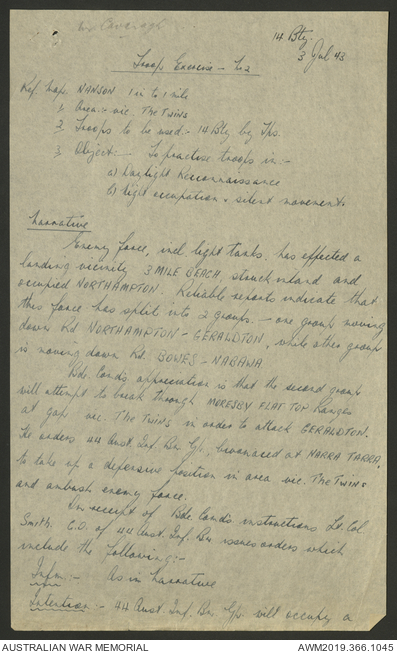 Cavanagh
14 Bty.
3 Jul 43
Troop Exercise - No 2
Ref. Map. NANSON 1 in to 1 mile
1 Area:- vic. The TWINS
2 Troops to be used:- 14 Bty by Tps.
3 Object:- To practise troops in:-
a) Daylight Reconnaissance
b) Night occupation & silent movement
Narrative
Enemy force, incl light tanks, has effected a
landing vicinity 3 MILE BEACH, struck inland and
occupied NORTHAMPTON. Reliable reports indicate that
this force has split into 2 groups. - one group moving
down Rd NORTHAMPTON - GERALDTON, while other group
is moving down Rd. BOWES - NABAWA
Bde. Comd's appreciation is that the second group
will attempt to break through MORESBY FLAT TOP Ranges
at gap vic. The TWINS in order to attack GERALDTON.
He orders 44 Aust. Inf. Bn Gp., bivouaced at NARRA TARRA,
to take up a defensive position in area vic. The TWINS
and ambush enemy force.
On receipt of Bde. Comd's instructions Lt. Col
Smith. C.O. of 44 Aust. Inf. Bn issues orders which
include the following:-
Infm:- As in narrative
Intention:- 44 Aust. Inf. Bn Gp. will occupy a
AUSTRALIAN WAR MEMORIAL
AWM2019.366.1045